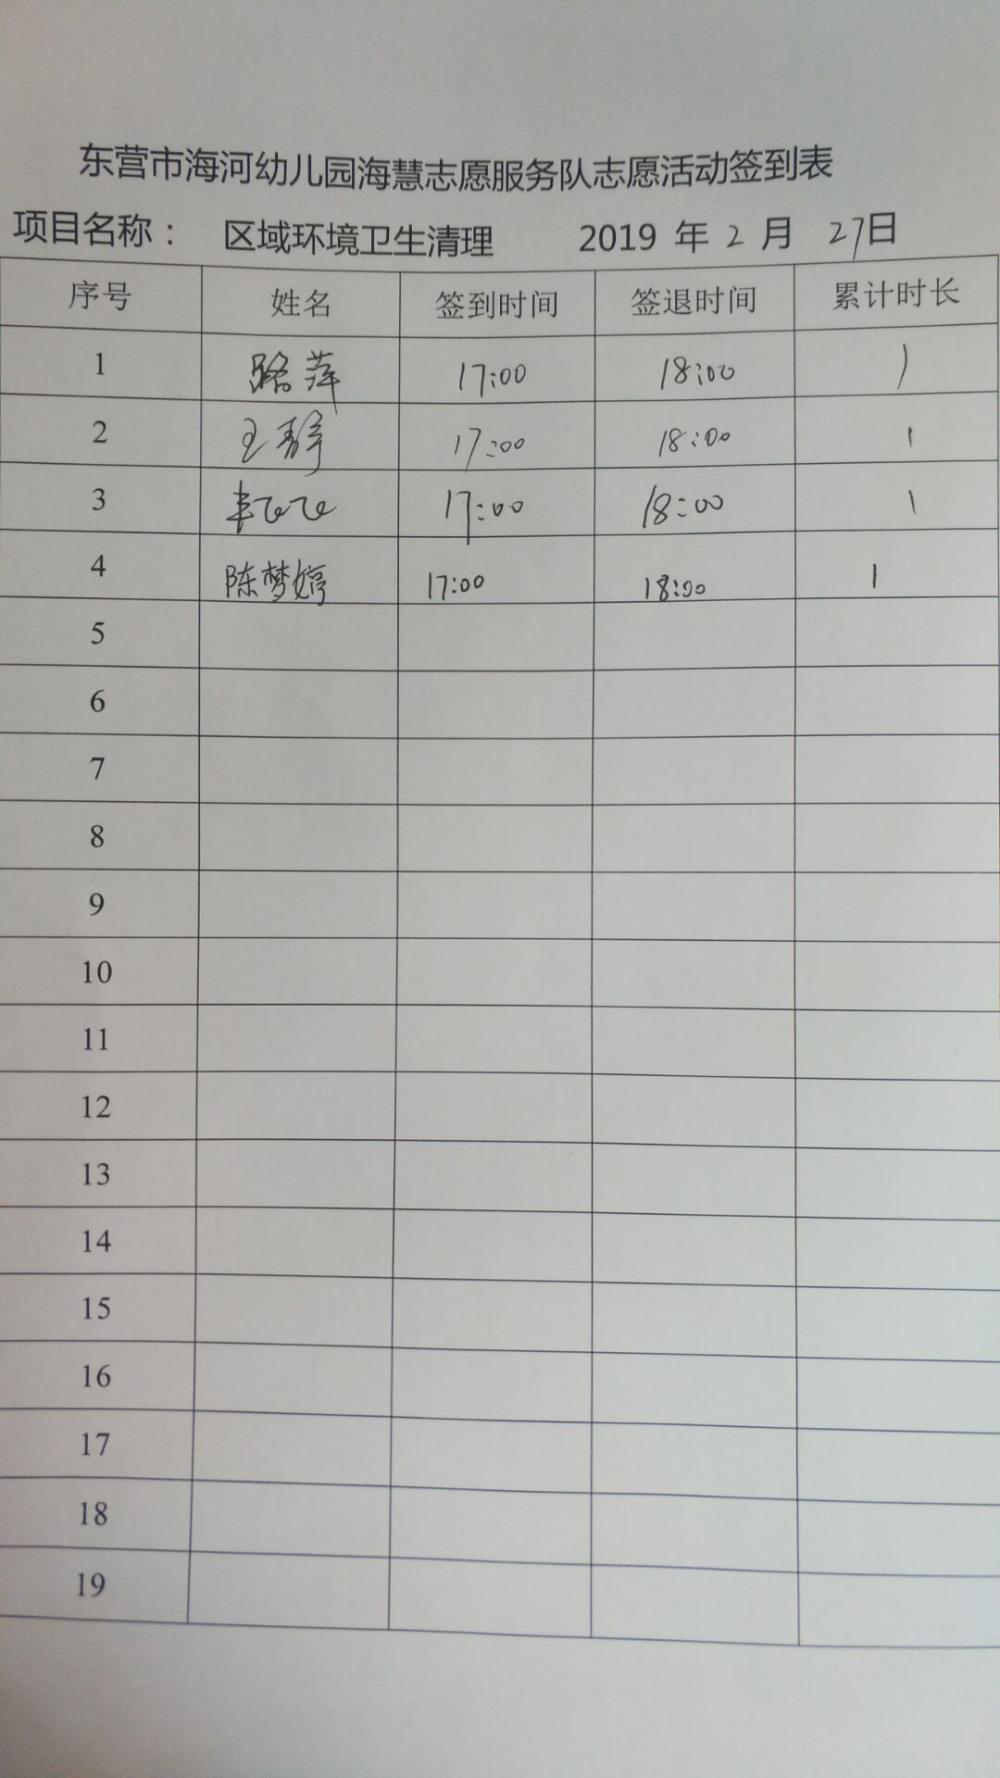 东营市海河幼儿园海慧志愿服务队志愿活动签到表
项目名称： 区域环境卫生清理 2019 年 2 月 27日
序号 姓名 签到时间 签退时间 累计时长
1 路萍 17:00 18:00 1
2 王静 17:00 18:00 1
3 17:00 18:00 1
4 陈梦婷 17:00 18:00 1
5
6
7
8
9
10
11
12
13
14
15
16
17
18
19